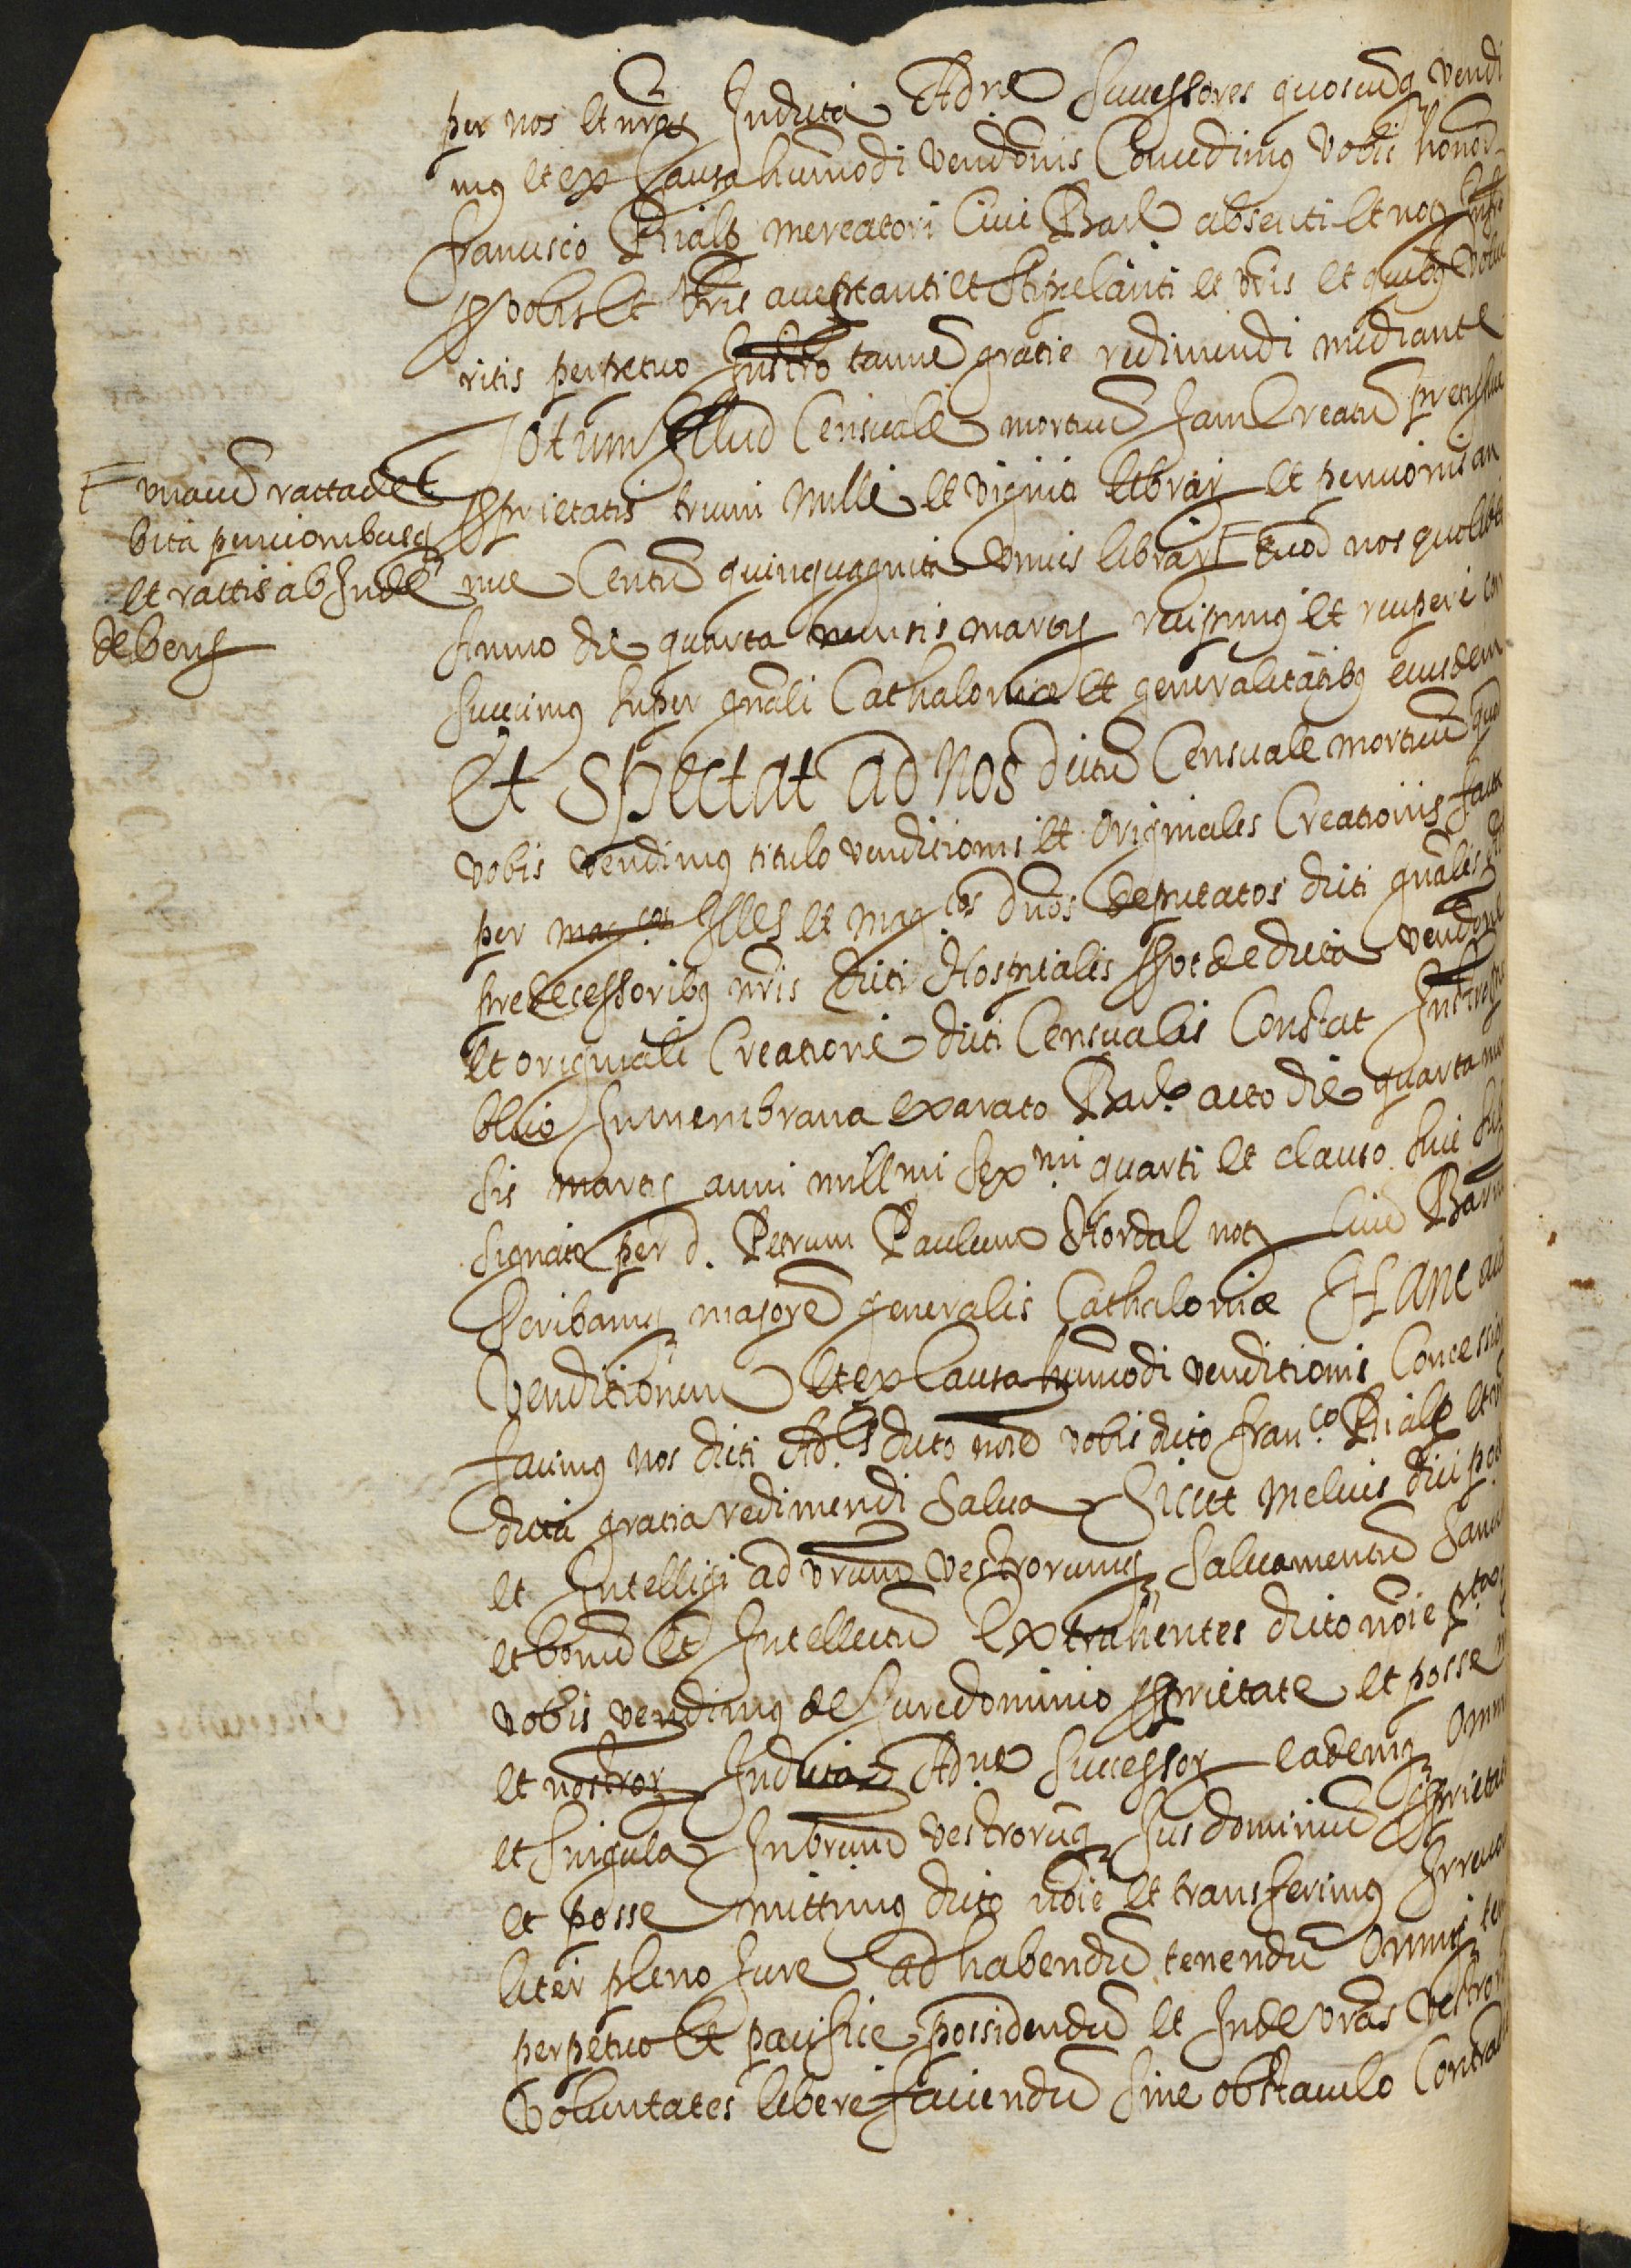 per nos et nr̃os In dicta Adne successores quoscumq vendi
mus et ex causa hm̃oi vendonis concedimus vobis honor
Francisco Rialp mercatori civi Barᵉ absenti et noto infro
p vobis et vr̃is acceptanti et stipulanti et vr̃is et quibus volue
ritis perpetuo Instro tamen gratie redimendi mediante
Totum Illud Censuale mortuum Jam creatum pretij sive
pprietatis trium mille et viginti librar et pencionis an
nue Centum quinquaginta unius librar quod nos quolibet
anno die quarta mensis martij recipimus et recipere con
suecimus super gñali Cathaloniæ et generalitatibus eiusdem
Et spectat ad nos dictum Censuale mortuum quod
vobis vendimus titulo venditionis et originales Creationis facte
per Illes et mag.cos dños deputatos dicti gñalis
predecessoribus nr̃is dicti Hospitalis put de dicta vendone
et originali Creatione dicti Censualis Constat Instro pu
blico In membrana exarato Barᵉ acto die quarta men
sis martij anni millmi sexmi quarti et clauso sive sub
signato per d. Petrum Paulum Hordal not civem Barne
scribamq majorem generalis Cathaloniæ Hanc aut
Venditionem et ex causa hm̃oi venditionis Concession
facimus nos dicti Adls dicto noĩe vobis dicto Fran.co Rialp et vr̃is
dicta gratia redimendi salva sicut melius dici pot
et Intelligi ad vr̃um vestrorumq salvamentum sanum
et bonum et Intellectum Extrahentes dicto noĩe
vobis vendimus de Jure dominio pprietate et posse nr̃o
et nostror In dicta Adne successor eademq omnia
et singula In vr̃um vestrorumq Jus dominium pprietatem
et posse mittimus dicto noĩe et transferimus Irrevoca
liter pleno Jure ad habendum tenendum omniq tem
perpetuo et pacifice possidendum et Inde vr̃as vestror
voluntates libere faciendum sine obstaculo Contrad
una cum ratta de
bita pencionibusq
et rattis ab Inde
debens